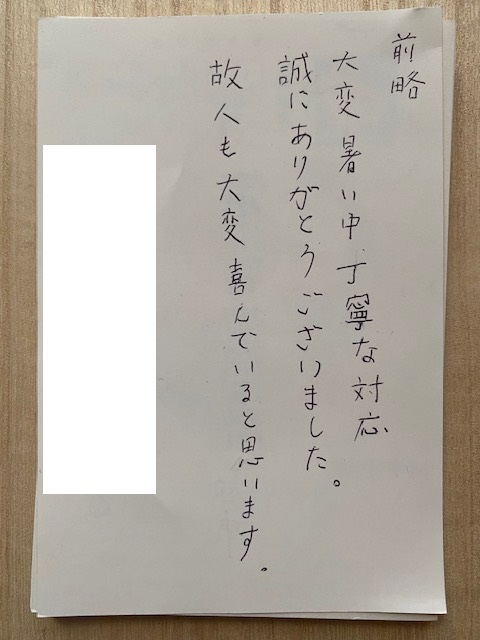 前略
大変暑い中丁寧な対応
誠にありがとうございました。
故人も大変喜んでいると思います。